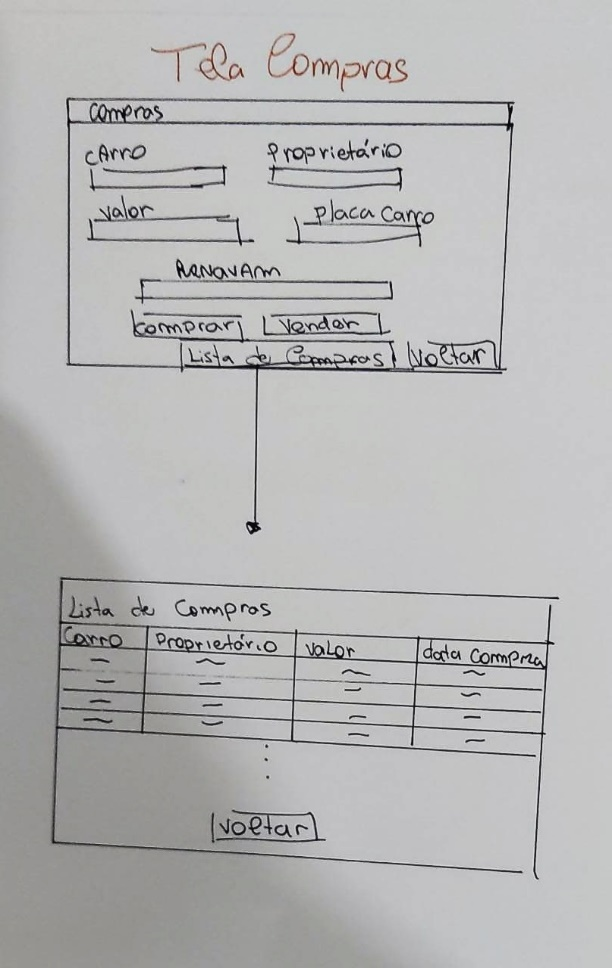 Tela Compras
Compras
cArro Proprietário
valor placa carro
RENAVAM
comprar vender
Lista de Compras voltar
Lista de Compras
Carro Proprietário valor data compra
voltar